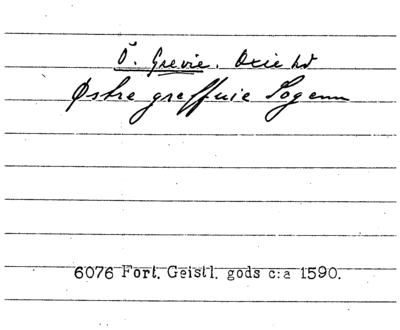 Ö. Grevie. Oxie hd
Østre greffuie Sogenn
6076 Fort. Geistl. gods c:a 1590.